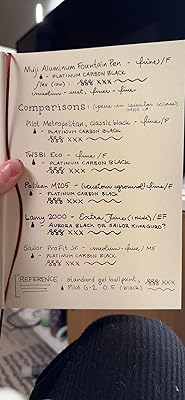 Muji Aluminum Fountain Pen - fine/F
- PLATINUM CARBON BLACK
flex (low) xxx
medium - wet, finer - fine
Comparisons:
Pilot Metropolitan, classic black - fine/F
- PLATINUM CARBON BLACK
xxx
TWSBI Eco - fine/F
- PLATINUM CARBON BLACK
xxx
Pelikan M205 - (custom ground) fine/F
- PLATINUM CARBON BLACK
xxx
Lamy 2000 - Extra fine / EF
- AURORA BLACK OR SAILOR KIWAGURO?
xxx
Sailor ProFit Jr - medium-fine / MF
- PLATINUM CARBON BLACK
xxx
REFERENCE: standard gel ballpoint, xxx
Pilot G-2 0.5 (black)